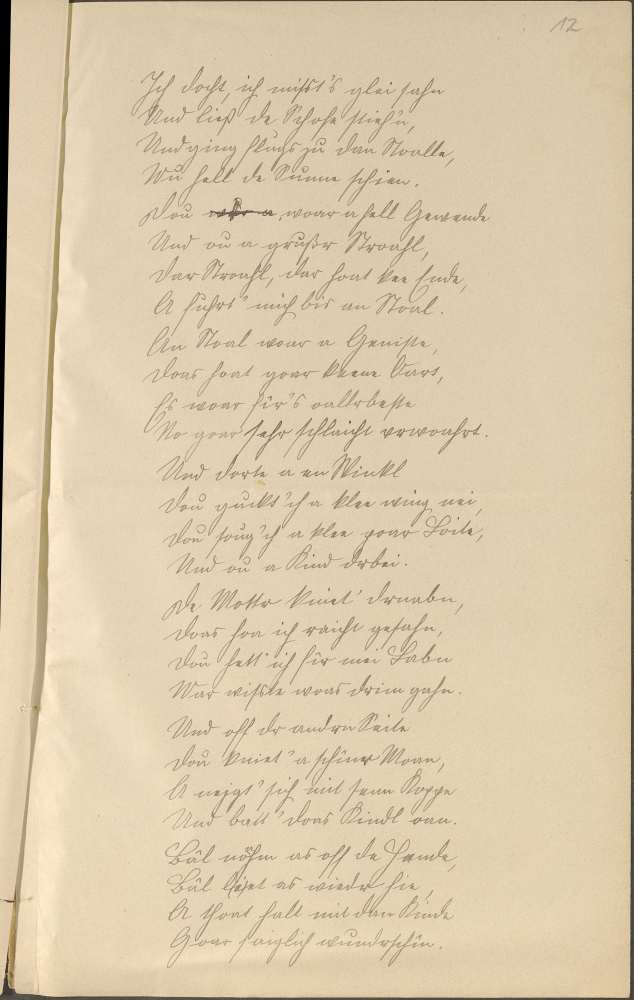 12
Ich docht, ich mißt's glei sahn
Und ließ de Schofe stieh'n,
Und ging flugs zu dan Stoalle,
Wu hell de Sunne schien.
Dou woar a hell Gewende
Und ou a grußr Stroahl,
Dar Stroahl, dar hoat kee Ende,
A fuhrt' mich bis an Stoal.
An Stoal woar a Geniste,
Doas hoat goar keene Oart,
Es woar fir's oallrbeste
No goar sehr schlaicht vrwoahrt.
Und dorte a en Winkl
Dou guckt' ich a klee wing nei,
Dou soug'ch a klee poar Loite,
Und ou a Kind drbei.
De Mottr kniet' drnabn,
Doas hoa ich raicht gesahn,
Dou hett' ich fir mei Labn
War wißte woas drim gahn.
Und off dr andrn Seite
Dou kniet' a schiner Moan,
A neigt' sich mit senn Koppe
Und batt' doas Kindl oan.
Bâl nohm as off de Hende,
Bâl läiet as wiedr hie,
A thoat halt mit dan Kinde
Goar saiglich wundrschin.